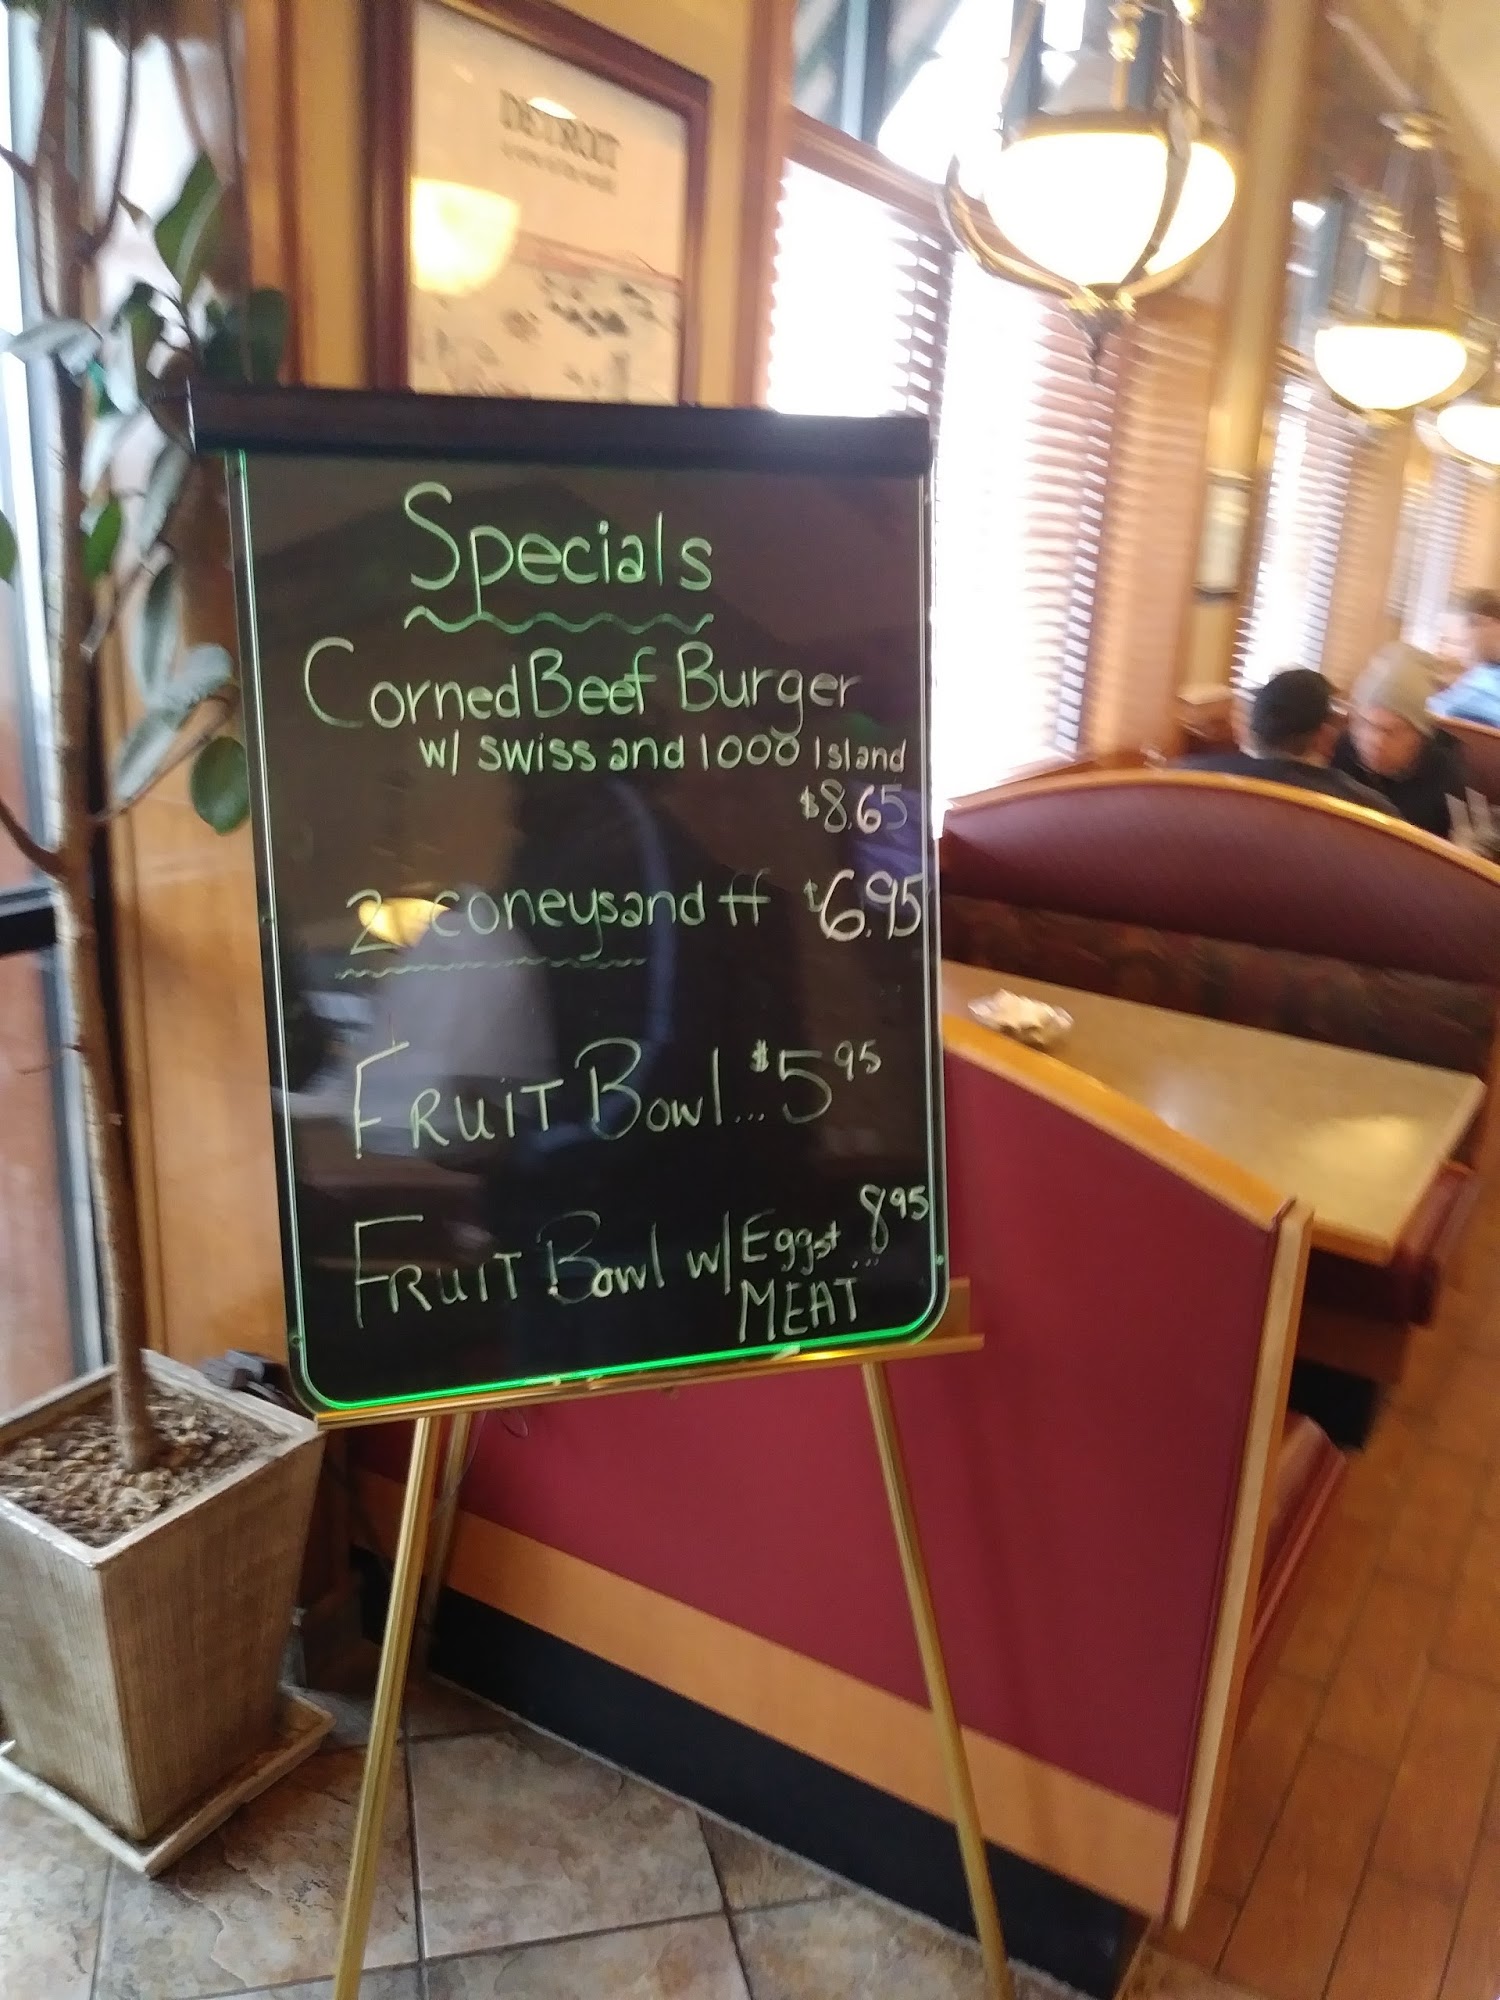 DETROIT
Specials
Corned Beef Burger
w/ swiss and 1000 Island
$8.65
2 coneys and ff $6.95
FRUIT BOWL... $5 95
FRUIT BOWL w/ Eggs+ ... 8 95
MEAT